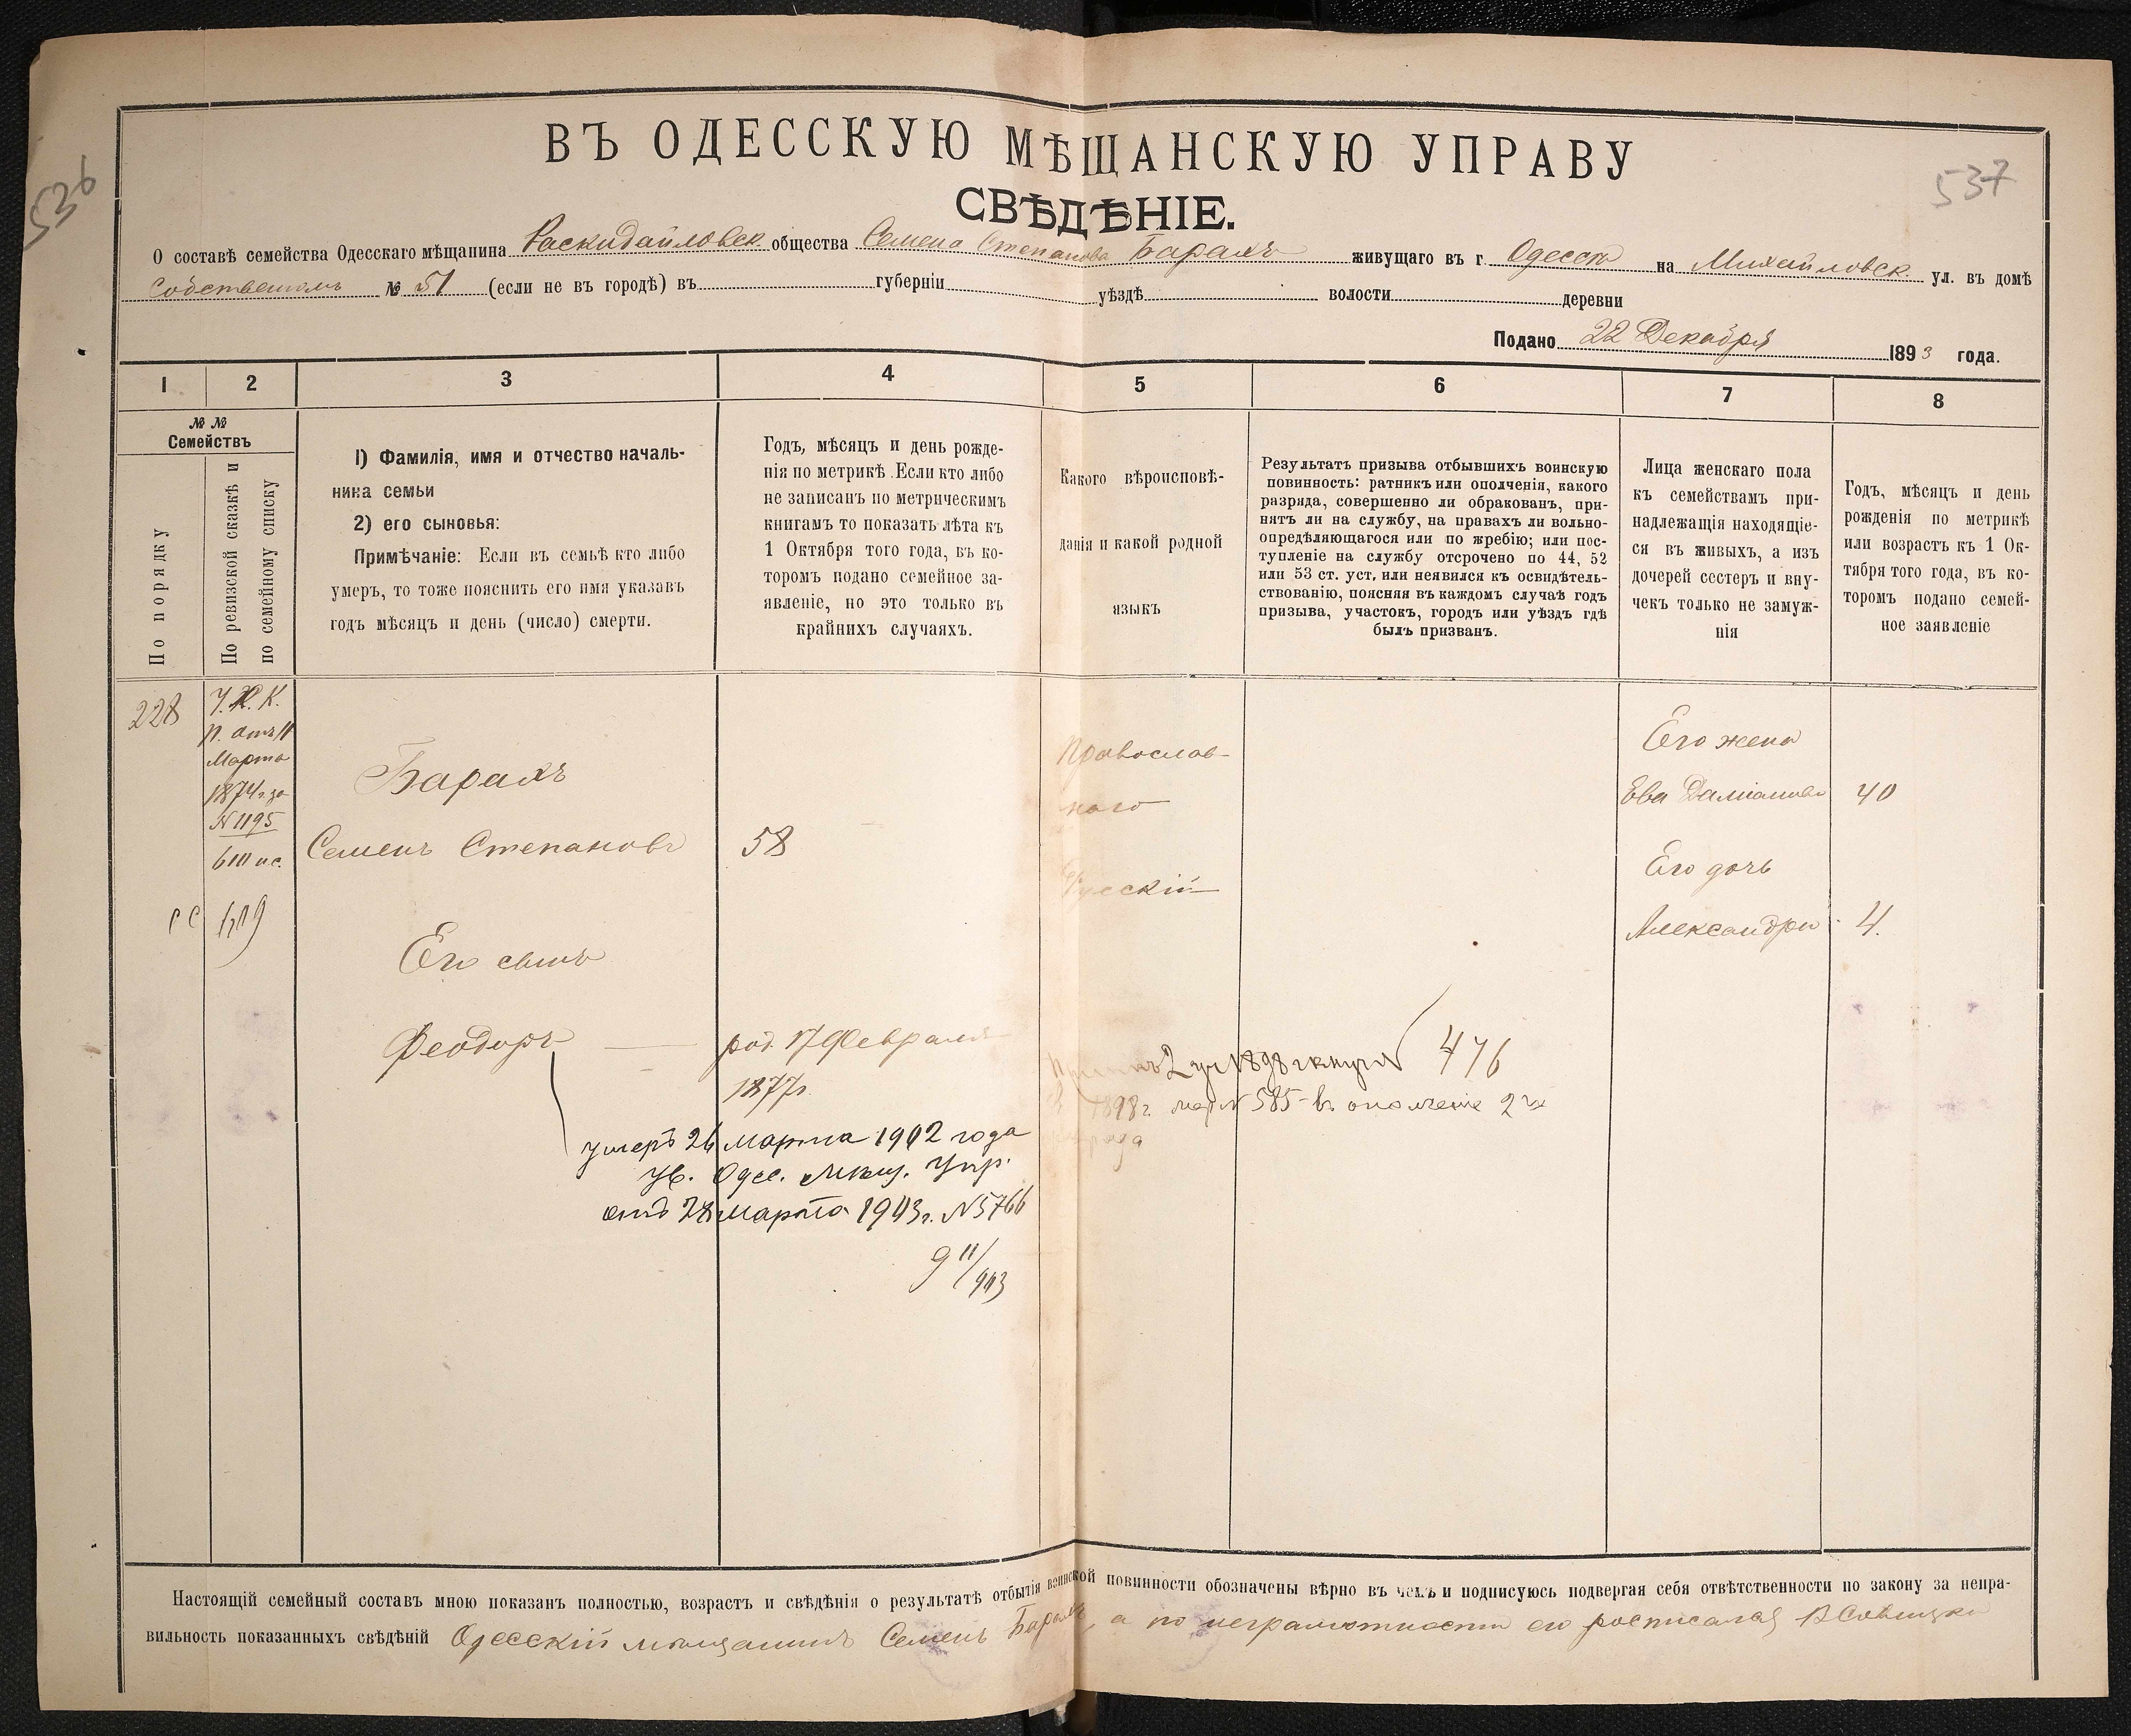 536
537
ВЪ ОДЕССКУЮ МѢЩАНСКУЮ УПРАВУ
СВѢДѢНІЕ.
О составѣ семейства Одесскаго мѣщанина Раскидайловск. общества Семена Степанова Барахъ живущаго въ г. Одессѣ на Михайловск. ул. въ домѣ
собственномъ № 51 (если не въ городѣ) въ губерніи уѣздѣ волости деревни
Подано 22 Декабря 1893 года.
1 2 3 4 5 6 7 8
№ №
Семействъ
По порядку
По ревизской сказкѣ и
по семейному списку
1) Фамилія, имя и отчество началь-
ника семьи
2) его сыновья:
Примѣчаніе: Если въ семьѣ кто либо
умеръ, то тоже пояснить его имя указавъ
годъ мѣсяцъ и день (число) смерти.
Годъ, мѣсяцъ и день рожде-
нія по метрикѣ. Если кто либо
не записанъ по метрическимъ
книгамъ то показать лѣта къ
1 Октября того года, въ ко-
торомъ подано семейное за-
явленіе, но это только въ
крайнихъ случаяхъ.
Какого вѣроисповѣ-
данія и какой родной
языкъ
Результатъ призыва отбывшихъ воинскую
повинность: ратникъ или ополченія, какого
разряда, совершенно ли обракованъ, при-
нятъ ли на службу, на правахъ ли вольно-
опредѣляющагося или по жребію; или пос-
тупленіе на службу отсрочено по 44, 52
или 53 ст. уст. или неявился къ освидѣтель-
ствованію, поясняя въ каждомъ случаѣ годъ
призыва, участокъ, городъ или уѣздъ гдѣ
былъ призванъ.
Лица женскаго пола
къ семействамъ при-
надлежащія находящіе-
ся въ живыхъ, а изъ
дочерей сестеръ и вну-
чекъ только не замуж-
нія
Годъ, мѣсяцъ и день
рожденія по метрикѣ
или возрастъ къ 1 Ок-
тября того года, въ ко-
торомъ подано семей-
ное заявленіе
228
У.К.К.
п. отъ 11
Марта
1874 г. за
№ 1195
Барахъ
Семенъ Степановъ
58
Его сынъ
Феодоръ
род. 17 Февраля
1877 г.
умеръ 26 Марта 1902 года
Ув. Одес. Мѣщ. Упр.
отъ 28 Марта 1903 г. № 5766
9 11/903
Православ-
наго
Русскій
476
1898 г. № 585 въ ополченіе 2
разряда
Его жена
Ева Даміанова
40
Его дочь
Александра
4.
Настоящій семейный составъ мною показанъ полностью, возрастъ и свѣдѣнія о результатѣ отбытія воинской повинности обозначены вѣрно въ чемъ и подписуюсь подвергая себя отвѣтственности по закону за непра-
вильность показанныхъ свѣдѣній Одесскій мѣщанинъ Семенъ Барахъ, а по неграмотности его росписался